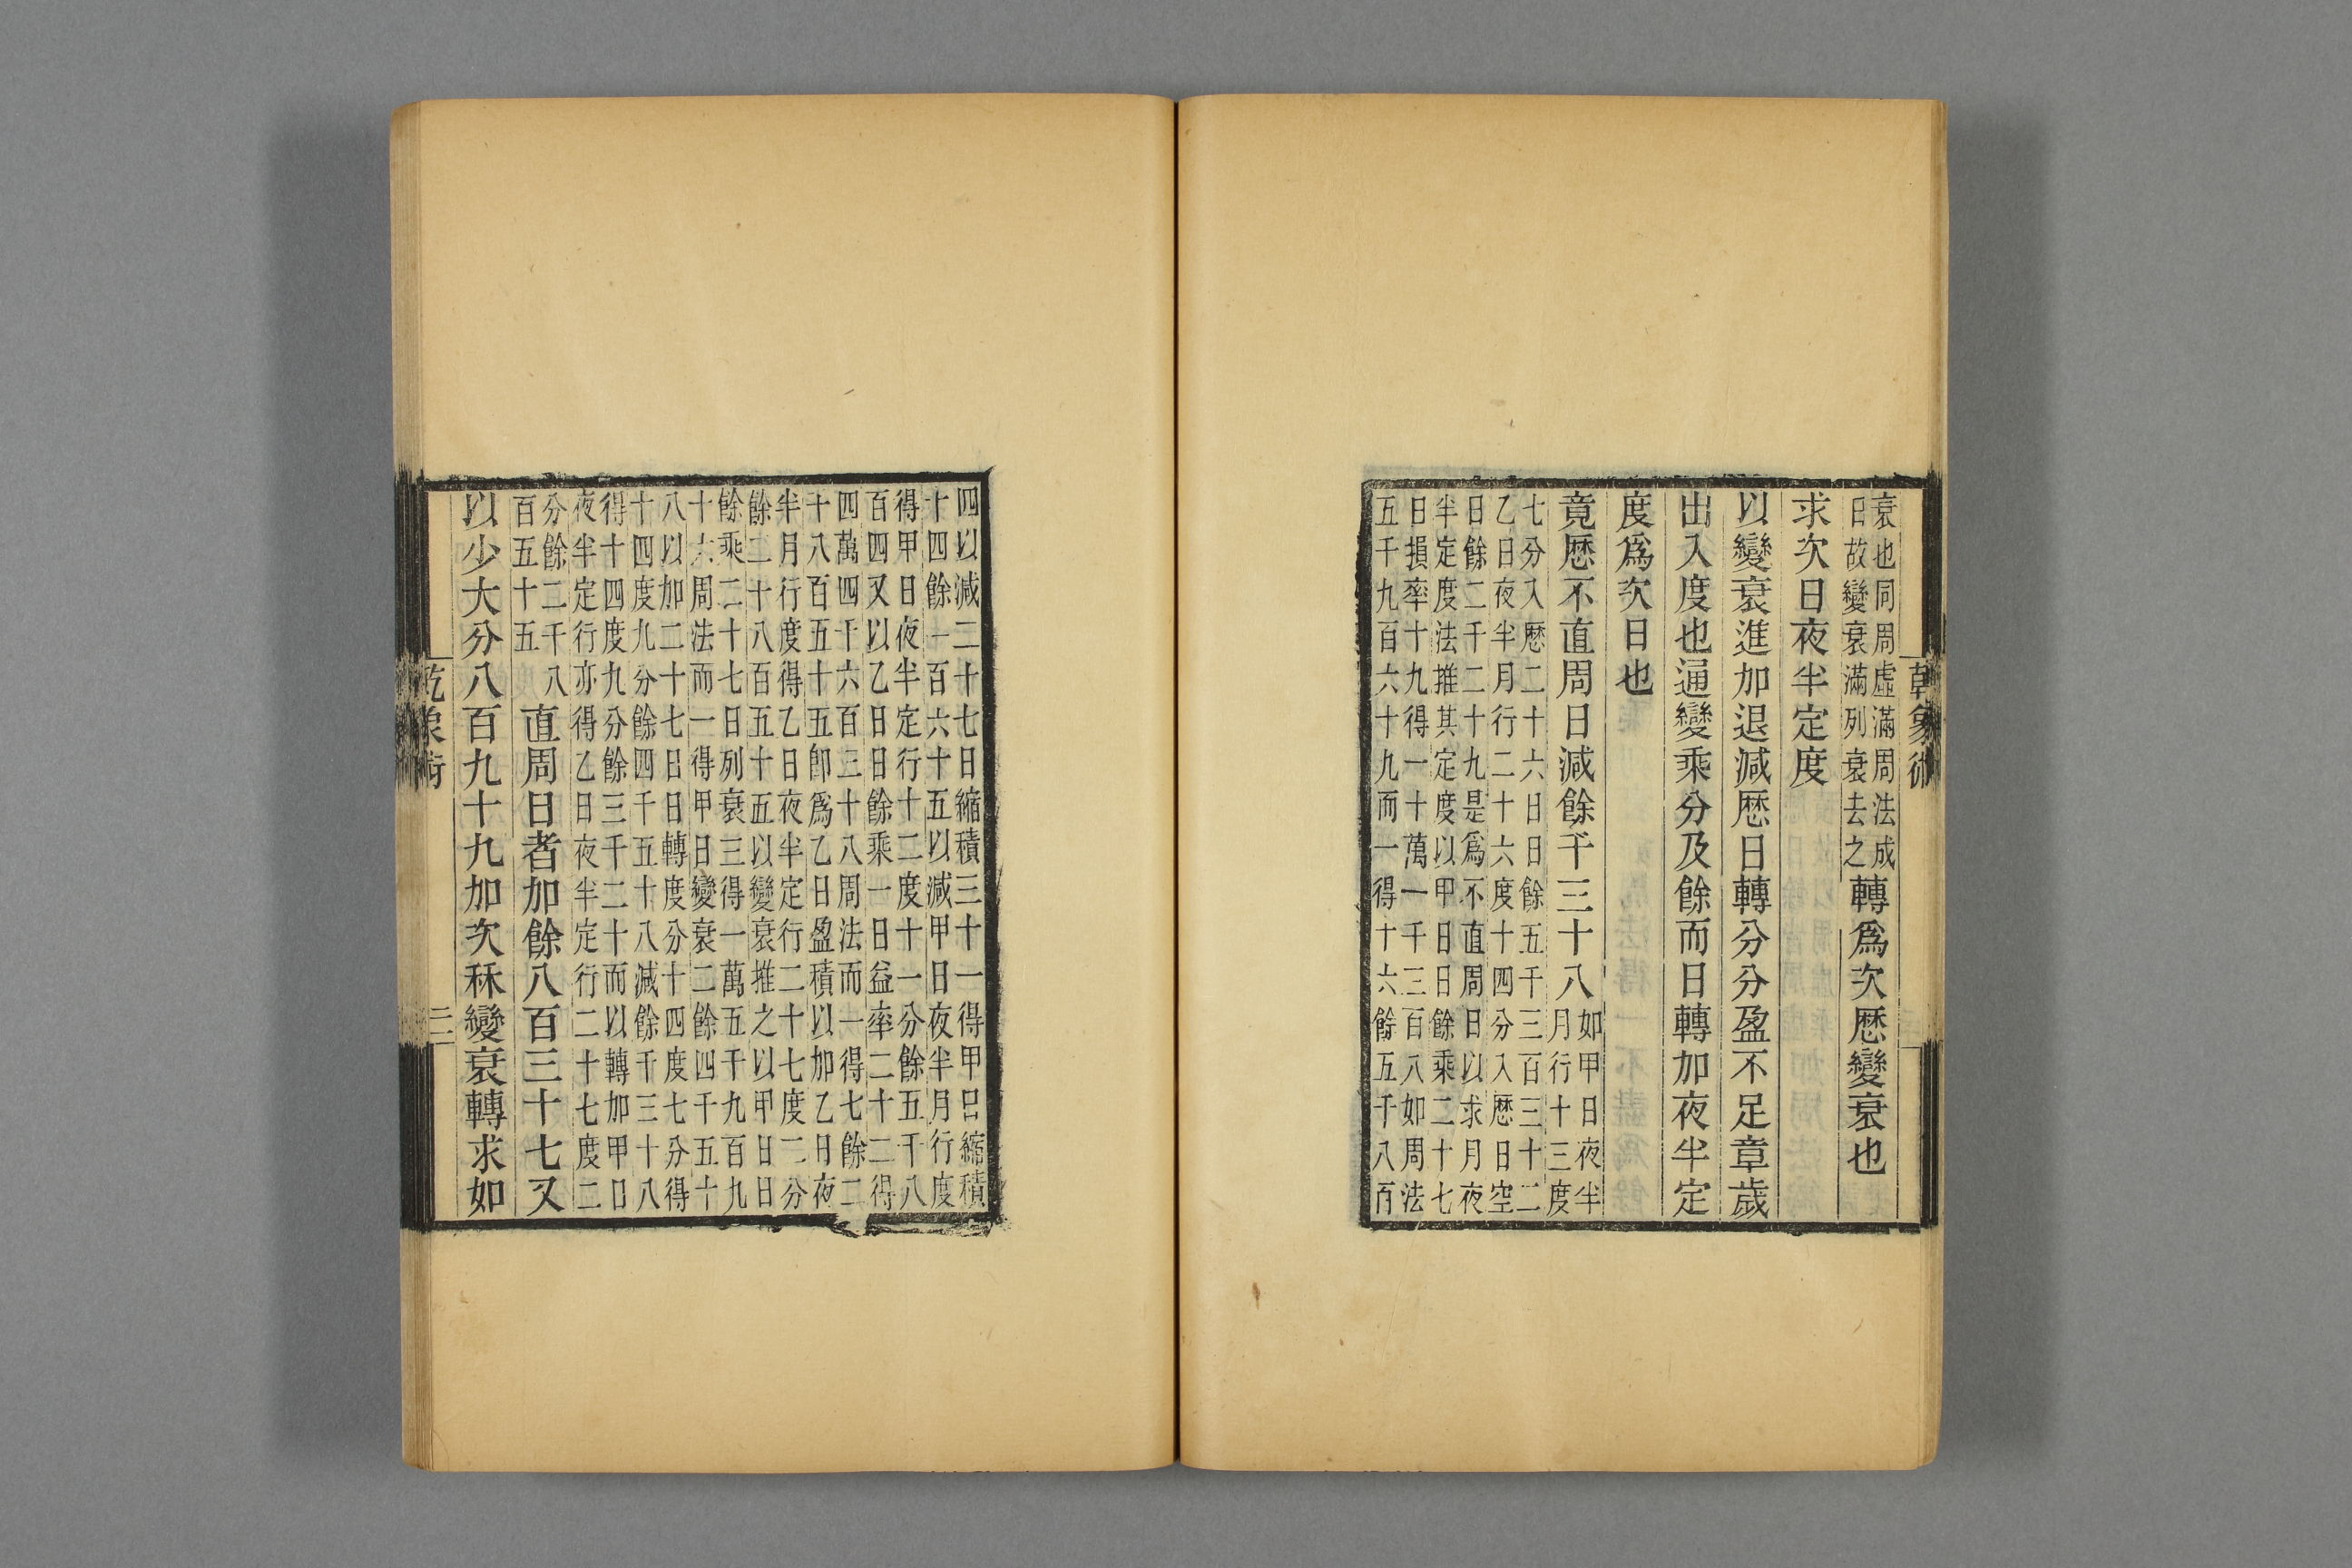 乾象術
衰也同周虛滿周法成
日故變衰滿列衰去之
轉爲次厯變衰也
求次日夜半定度
以變衰進加退減厯日轉分分盈不足章歲
出入度也通變乘分及餘而日轉加夜半定
度爲次日也
竟厯不直周日減餘千三十八
如甲日夜半
月行十三度
七分入厯二十六日日餘五千三百三十二
乙日夜半月行二十六度十四分入厯日空
日餘二千二十九是爲不直周日以求月夜
半定度法推其定度以甲日日餘乘二十七
日損率十九得一十萬一千三百八如周法
五千九百六十九而一得十六餘五千八百
四以減二十七日縮積三十一得甲日縮積
十四餘一百六十五以減甲日夜半月行度
得甲日夜半定行十二度十一分餘五千八
百四又以乙日日餘乘一日益率二十二得
四萬四千六百三十八周法而一得七餘二
十八百五十五卽爲乙日盈積以加乙日夜
半月行度得乙日夜半定行二十七度二分
餘二十八百五十五以變衰推之以甲日日
餘乘二十七日列衰三得一萬五千九百九
十六周法而一得甲日變衰二餘四千五十
八以加二十七日日轉度分十四度七分得
十四度九分餘四千五十八減餘千三十八
得十四度九分餘三千二十而以轉加甲日
夜半定行亦得乙日夜半定行二十七度二
分餘二千八
百五十五
直周日者加餘八百三十七又
以少大分八百九十九加次秝變衰轉求如
乾象術